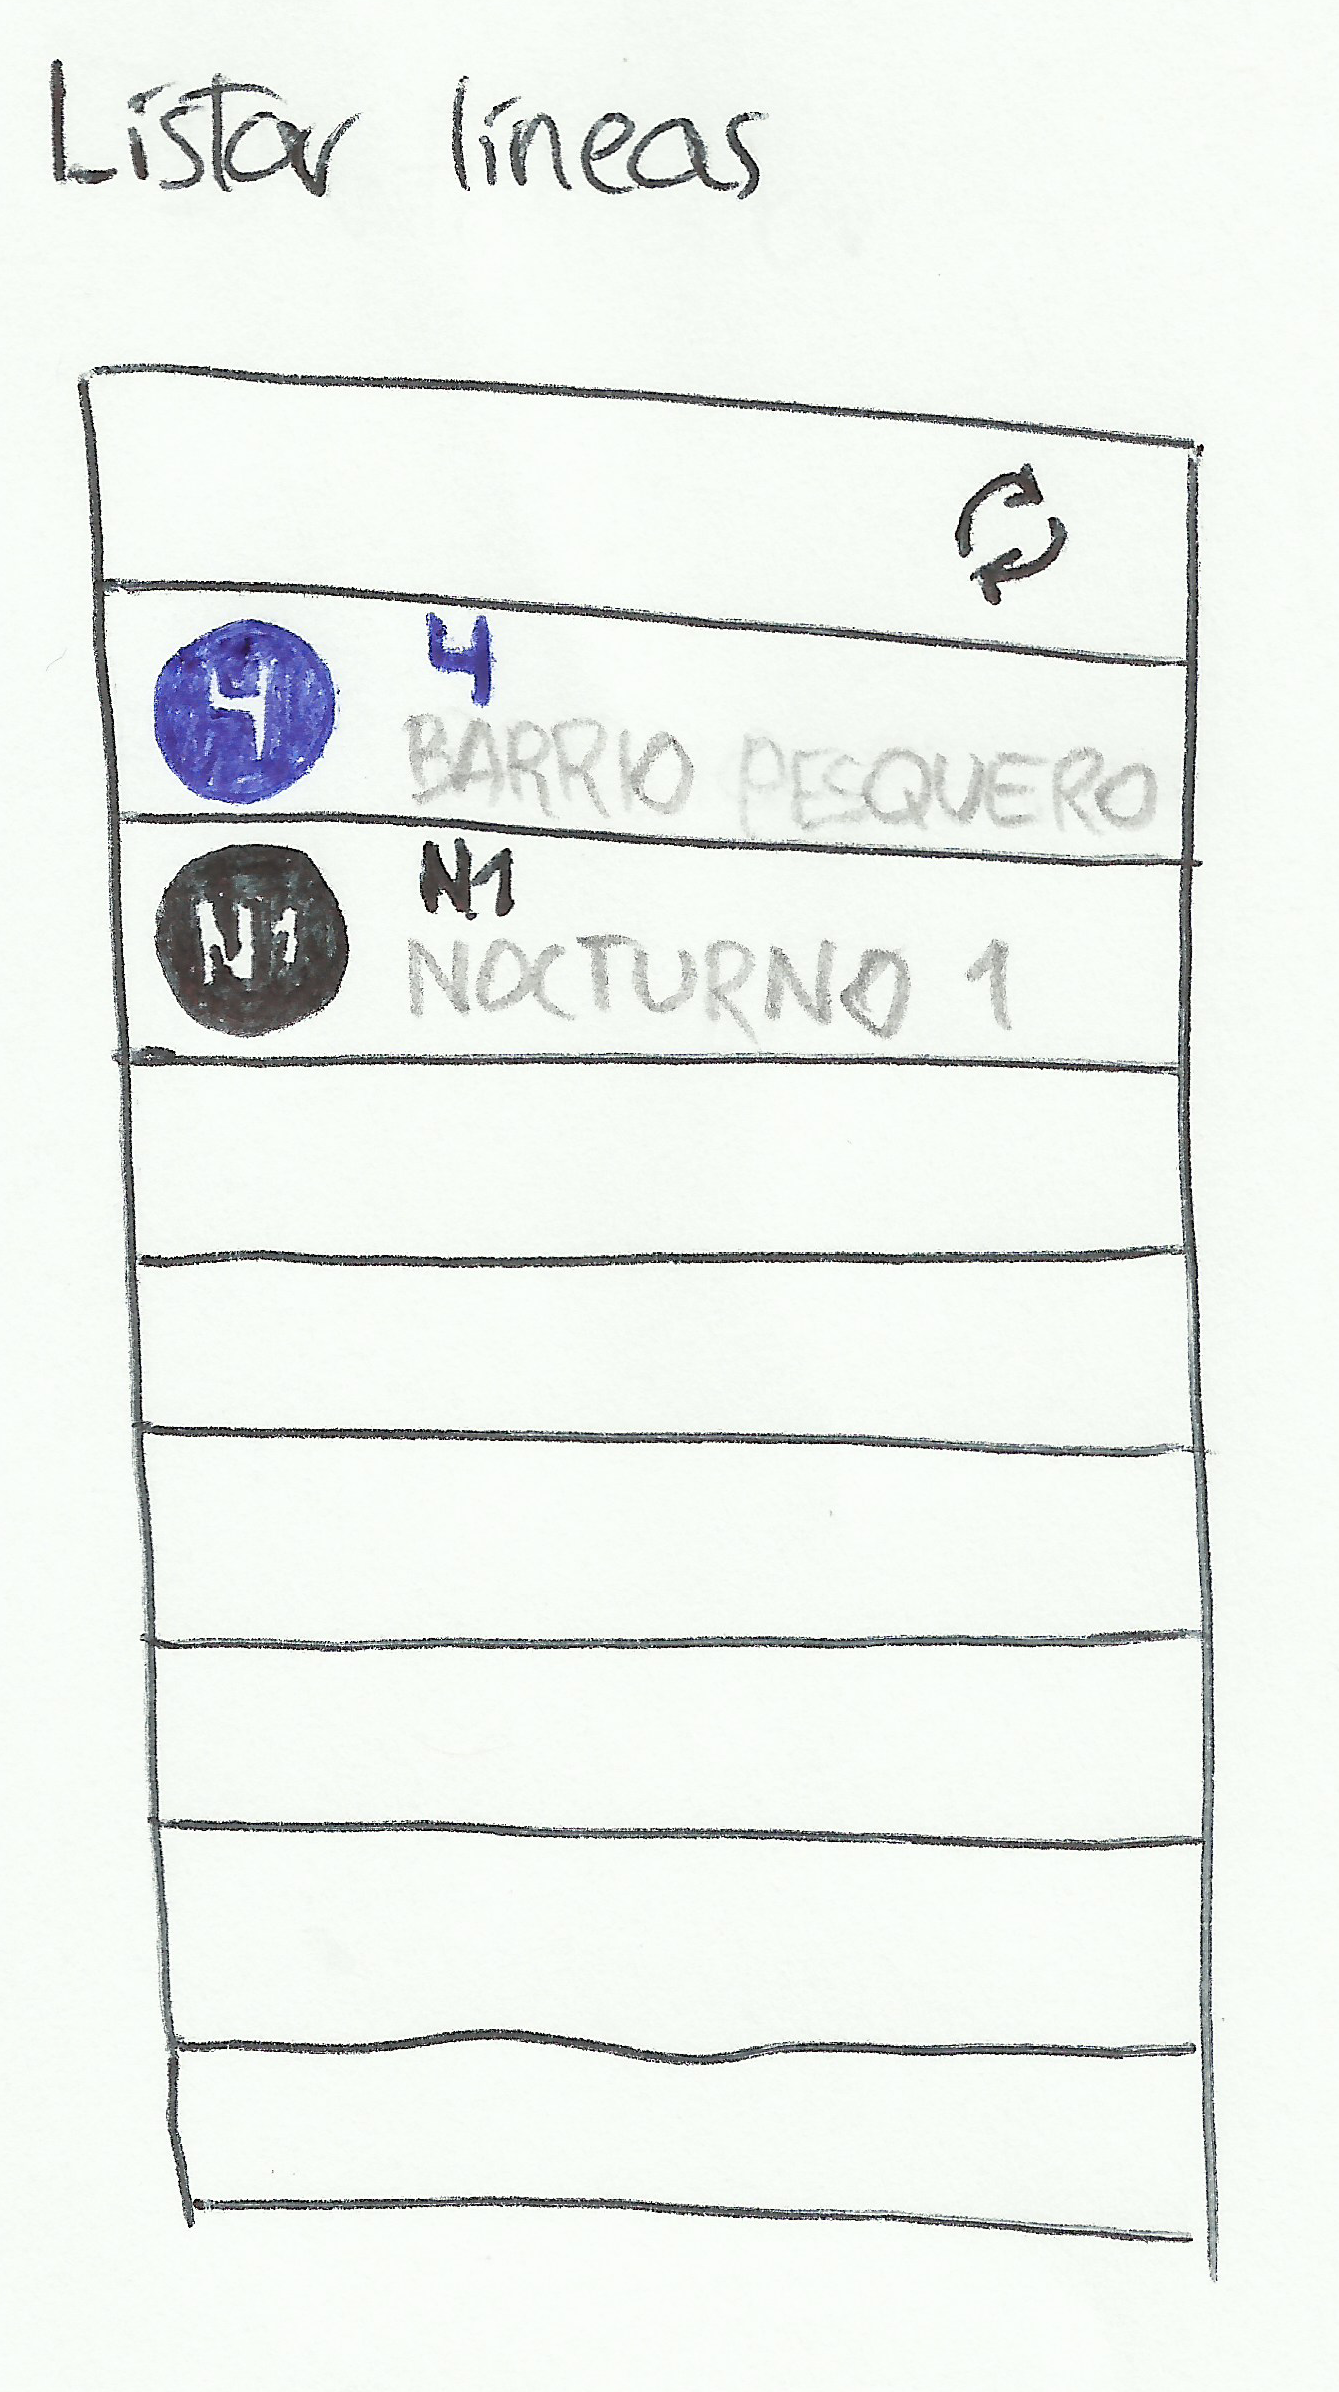 Listar líneas
4
4
BARRIO PESQUERO
N1
N1
NOCTURNO 1